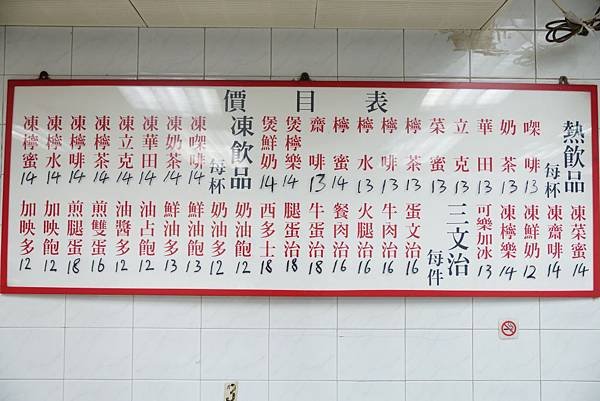 價目表
熱飲品 每杯
㗎啡 13
奶茶 13
華田 13
立克 13
菜蜜 13
檸茶 13
檸水 13
檸蜜 14
齋啡 13
煲檸樂 14
煲鮮奶 14
凍飲品 每杯
凍㗎啡 14
凍奶茶 14
凍華田 14
凍立克 14
凍檸茶 14
凍檸啡 14
凍檸水 14
凍檸蜜 14
凍菜蜜 14
凍齋啡 14
凍鮮奶 12
凍檸樂 14
可樂加冰 13
三文治 每件
蛋文治 16
牛肉治 16
火腿治 16
餐肉治 16
牛蛋治 18
腿蛋治 18
西多士 18
奶油飽 12
奶油多 12
鮮油飽 13
鮮油多 13
油占飽 12
油醬多 12
煎雙蛋 16
煎腿蛋 18
加映飽 12
加映多 12
3